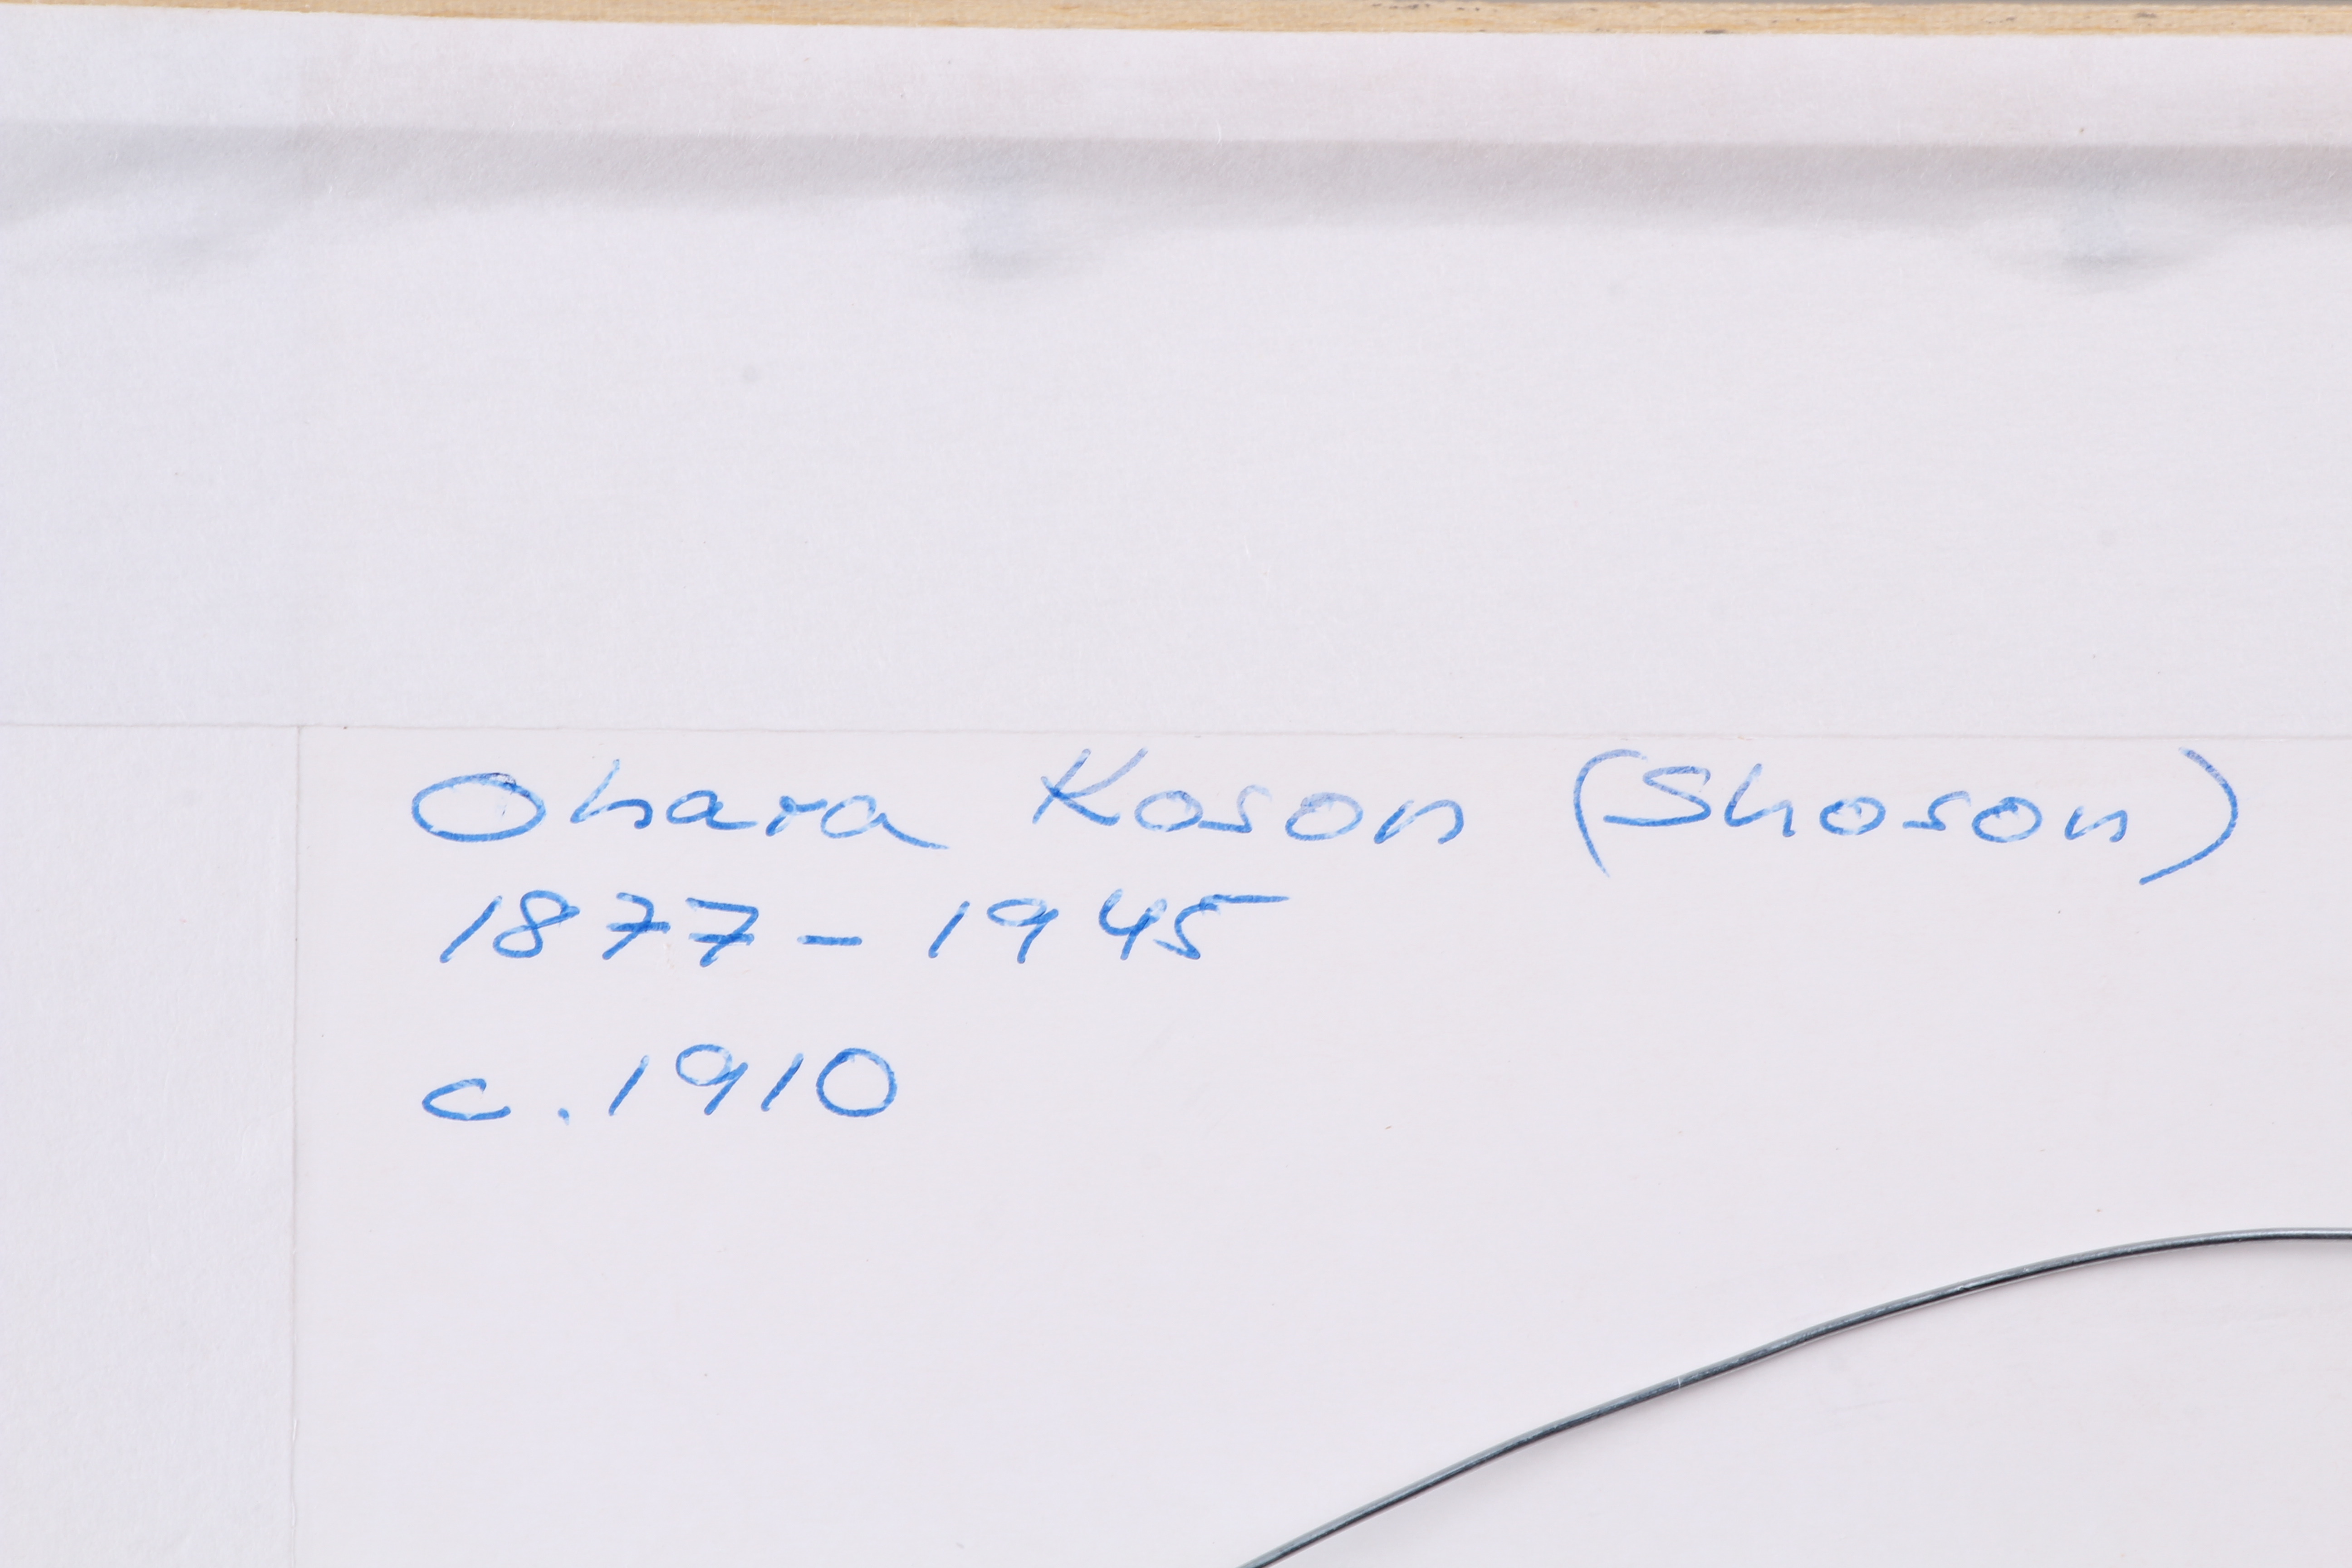 Ohara Koson (Shoson)
1877-1945
c.1910